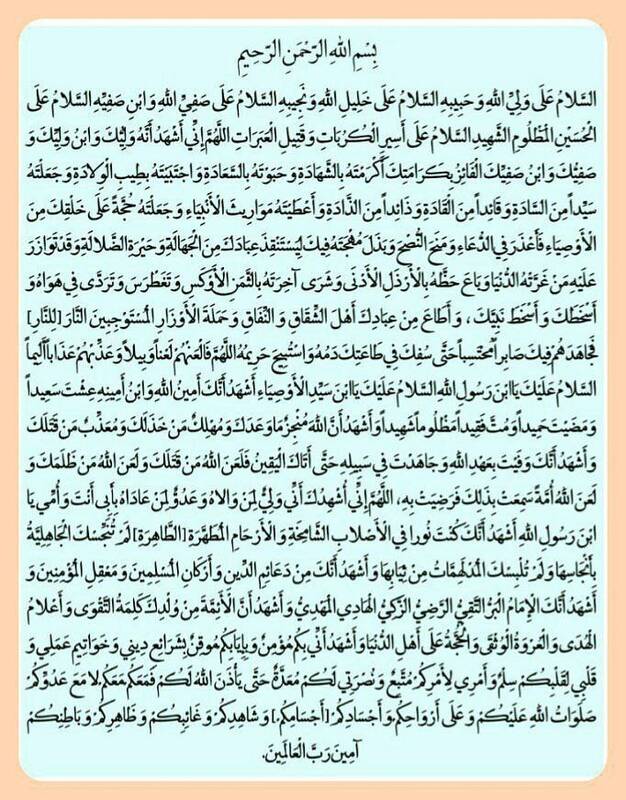 بِسْمِ اللهِ الرَّحْمَنِ الرَّحِيمِ
السَّلَامُ عَلَى وَلِيِّ اللهِ وَحَبِيبِهِ السَّلَامُ عَلَى خَلِيلِ اللهِ وَنَجِيبِهِ السَّلَامُ عَلَى صَفِيِّ اللهِ وَابْنِ صَفِيِّهِ السَّلَامُ عَلَى
الْحُسَيْنِ الْمَظْلُومِ الشَّهِيدِ السَّلَامُ عَلَى أَسِيرِ الْكُرُبَاتِ وَقَتِيلِ الْعَبَرَاتِ اللَّهُمَّ إِنِّي أَشْهَدُ أَنَّهُ وَلِيُّكَ وَابْنُ وَلِيِّكَ وَ
صَفِيُّكَ وَابْنُ صَفِيِّكَ الْفَائِزُ بِكَرَامَتِكَ أَكْرَمْتَهُ بِالشَّهَادَةِ وَحَبَوْتَهُ بِالسَّعَادَةِ وَاجْتَبَيْتَهُ بِطِيبِ الْوِلَادَةِ وَجَعَلْتَهُ
سَيِّداً مِنَ السَّادَةِ وَقَائِداً مِنَ الْقَادَةِ وَذَائِداً مِنَ الذَّادَةِ وَأَعْطَيْتَهُ مَوَارِيثَ الْأَنْبِيَاءِ وَجَعَلْتَهُ حُجَّةً عَلَى خَلْقِكَ مِنَ
الْأَوْصِيَاءِ فَأَعْذَرَ فِي الدُّعَاءِ وَمَنَحَ النُّصْحَ وَبَذَلَ مُهْجَتَهُ فِيكَ لِيَسْتَنْقِذَ عِبَادَكَ مِنَ الْجَهَالَةِ وَحَيْرَةِ الضَّلَالَةِ وَقَدْ تَوَازَرَ
عَلَيْهِ مَنْ غَرَّتْهُ الدُّنْيَا وَبَاعَ حَظَّهُ بِالْأَرْذَلِ الْأَدْنَى وَشَرَى آخِرَتَهُ بِالثَّمَنِ الْأَوْكَسِ وَتَغَطْرَسَ وَتَرَدَّى فِي هَوَاهُ وَ
أَسْخَطَكَ وَأَسْخَطَ نَبِيَّكَ ، وَأَطَاعَ مِنْ عِبَادِكَ أَهْلَ الشِّقَاقِ وَالنِّفَاقِ وَحَمَلَةَ الْأَوْزَارِ الْمُسْتَوْجِبِينَ النَّارَ [لِلنَّارِ]
فَجَاهَدَهُمْ فِيكَ صَابِراً مُحْتَسِباً حَتَّى سُفِكَ فِي طَاعَتِكَ دَمُهُ وَاسْتُبِيحَ حَرِيمُهُ اللَّهُمَّ فَالْعَنْهُمْ لَعْناً وَبِيلاً وَعَذِّبْهُمْ عَذَاباً أَلِيماً
السَّلَامُ عَلَيْكَ يَا ابْنَ رَسُولِ اللهِ السَّلَامُ عَلَيْكَ يَا ابْنَ سَيِّدِ الْأَوْصِيَاءِ أَشْهَدُ أَنَّكَ أَمِينُ اللهِ وَابْنُ أَمِينِهِ عِشْتَ سَعِيداً
وَمَضَيْتَ حَمِيداً وَمُتَّ فَقِيداً مَظْلُوماً شَهِيداً وَأَشْهَدُ أَنَّ اللهَ مُنْجِزٌ مَا وَعَدَكَ وَمُهْلِكٌ مَنْ خَذَلَكَ وَمُعَذِّبٌ مَنْ قَتَلَكَ
وَأَشْهَدُ أَنَّكَ وَفَيْتَ بِعَهْدِ اللهِ وَجَاهَدْتَ فِي سَبِيلِهِ حَتَّى أَتَاكَ الْيَقِينُ فَلَعَنَ اللهُ مَنْ قَتَلَكَ وَلَعَنَ اللهُ مَنْ ظَلَمَكَ وَ
لَعَنَ اللهُ أُمَّةً سَمِعَتْ بِذَلِكَ فَرَضِيَتْ بِهِ، اللَّهُمَّ إِنِّي أُشْهِدُكَ أَنِّي وَلِيٌّ لِمَنْ وَالَاهُ وَعَدُوٌّ لِمَنْ عَادَاهُ بِأَبِي أَنْتَ وَأُمِّي يَا
ابْنَ رَسُولِ اللهِ أَشْهَدُ أَنَّكَ كُنْتَ نُوراً فِي الْأَصْلَابِ الشَّامِخَةِ وَالْأَرْحَامِ الْمُطَهَّرَةِ [الطَّاهِرَةِ] لَمْ تُنَجِّسْكَ الْجَاهِلِيَّةُ
بِأَنْجَاسِهَا وَلَمْ تُلْبِسْكَ الْمُدْلَهِمَّاتُ مِنْ ثِيَابِهَا وَأَشْهَدُ أَنَّكَ مِنْ دَعَائِمِ الدِّينِ وَأَرْكَانِ الْمُسْلِمِينَ وَمَعْقِلِ الْمُؤْمِنِينَ وَ
أَشْهَدُ أَنَّكَ الْإِمَامُ الْبَرُّ التَّقِيُّ الرَّضِيُّ الزَّكِيُّ الْهَادِي الْمَهْدِيُّ وَأَشْهَدُ أَنَّ الْأَئِمَّةَ مِنْ وُلْدِكَ كَلِمَةُ التَّقْوَى وَأَعْلَامُ
الْهُدَى وَالْعُرْوَةُ الْوُثْقَى وَالْحُجَّةُ عَلَى أَهْلِ الدُّنْيَا وَأَشْهَدُ أَنِّي بِكُمْ مُؤْمِنٌ وَبِإِيَابِكُمْ مُوقِنٌ بِشَرَائِعِ دِينِي وَخَوَاتِيمِ عَمَلِي وَ
قَلْبِي لِقَلْبِكُمْ سِلْمٌ وَأَمْرِي لِأَمْرِكُمْ مُتَّبِعٌ وَنُصْرَتِي لَكُمْ مُعَدَّةٌ حَتَّى يَأْذَنَ اللهُ لَكُمْ فَمَعَكُمْ مَعَكُمْ لَا مَعَ عَدُوِّكُمْ
صَلَوَاتُ اللهِ عَلَيْكُمْ وَعَلَى أَرْوَاحِكُمْ وَأَجْسَادِكُمْ [أَجْسَامِكُمْ] وَشَاهِدِكُمْ وَغَائِبِكُمْ وَظَاهِرِكُمْ وَبَاطِنِكُمْ
آمِينَ رَبَّ الْعَالَمِينَ.